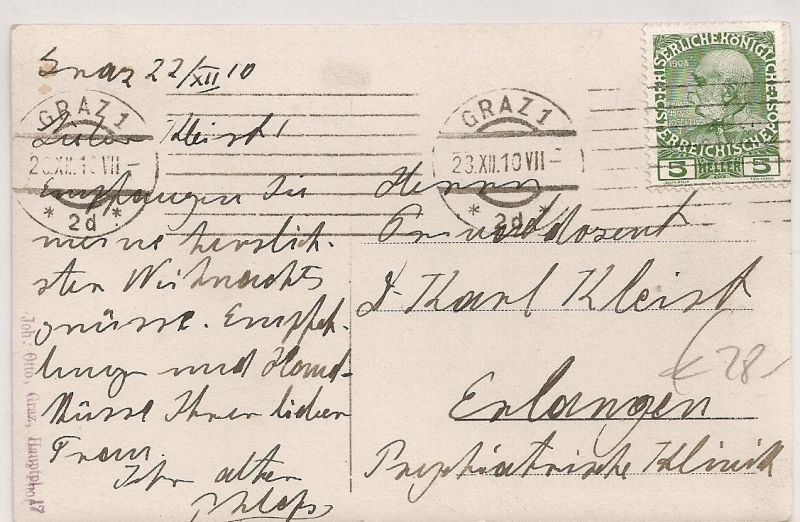 Graz 22/XII 10
Lieber Kleist!
Empfangen Sie
meine herzlich-
sten Weihnachts
grüsse. Empfeh-
lungen und Hand-
küsse Ihrer lieben
Frau.
Ihr alter
GRAZ 1
23.XII.10 VII-
* 2d *
GRAZ 1
23.XII.10 VII-
* 2d *
KAISERLICHE KÖNIGLICHE
ÖSTERREICHISCHE POST
1908
5 HELLER 5
Herrn
Privatdozent
Dr. Karl Kleist
Erlangen
Psychiatrische Klinik
€ 28
Joh: Otto, Graz, Hauptpl. 17